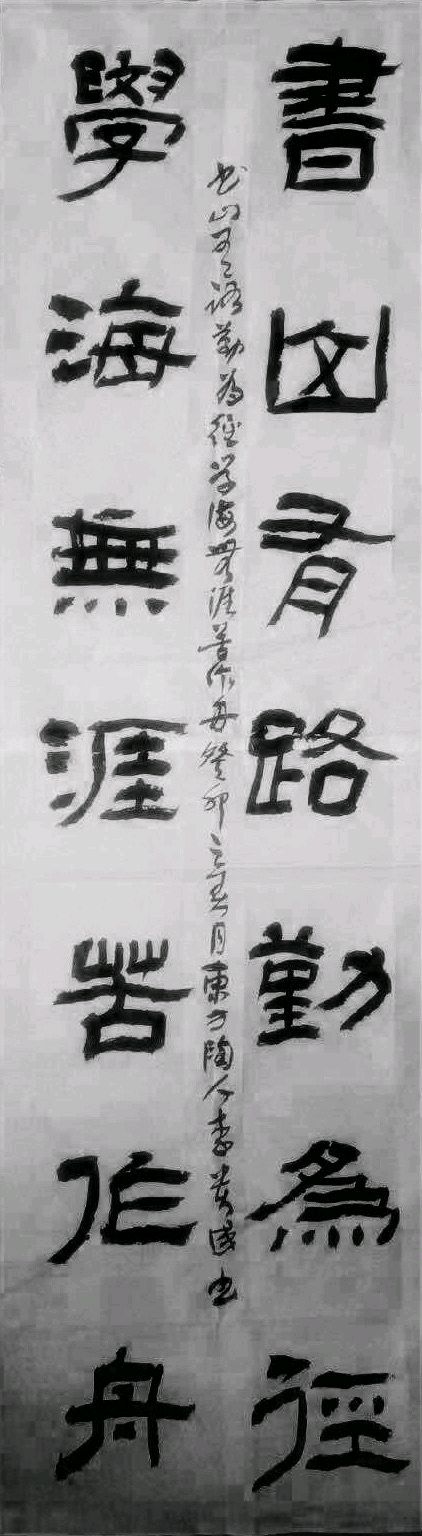 書山有路勤為徑
書山有路勤為徑學海無涯苦作舟癸卯之春月東方陶人李黃國書
學海無涯苦作舟